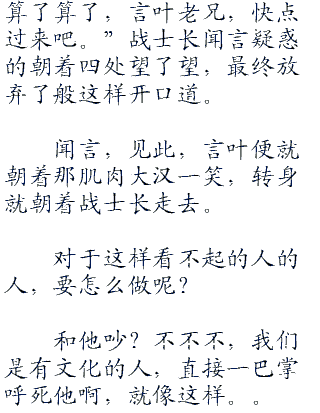 算了算了，言叶老兄，快点
过来吧。”战士长闻言疑惑
的朝着四处望了望，最终放
弃了般这样开口道。
闻言，见此，言叶便就
朝着那肌肉大汉一笑，转身
就朝着战士长走去。
对于这样看不起的人的
人，要怎么做呢？
和他吵？不不不，我们
是有文化的人，直接一巴掌
呼死他啊，就像这样。。